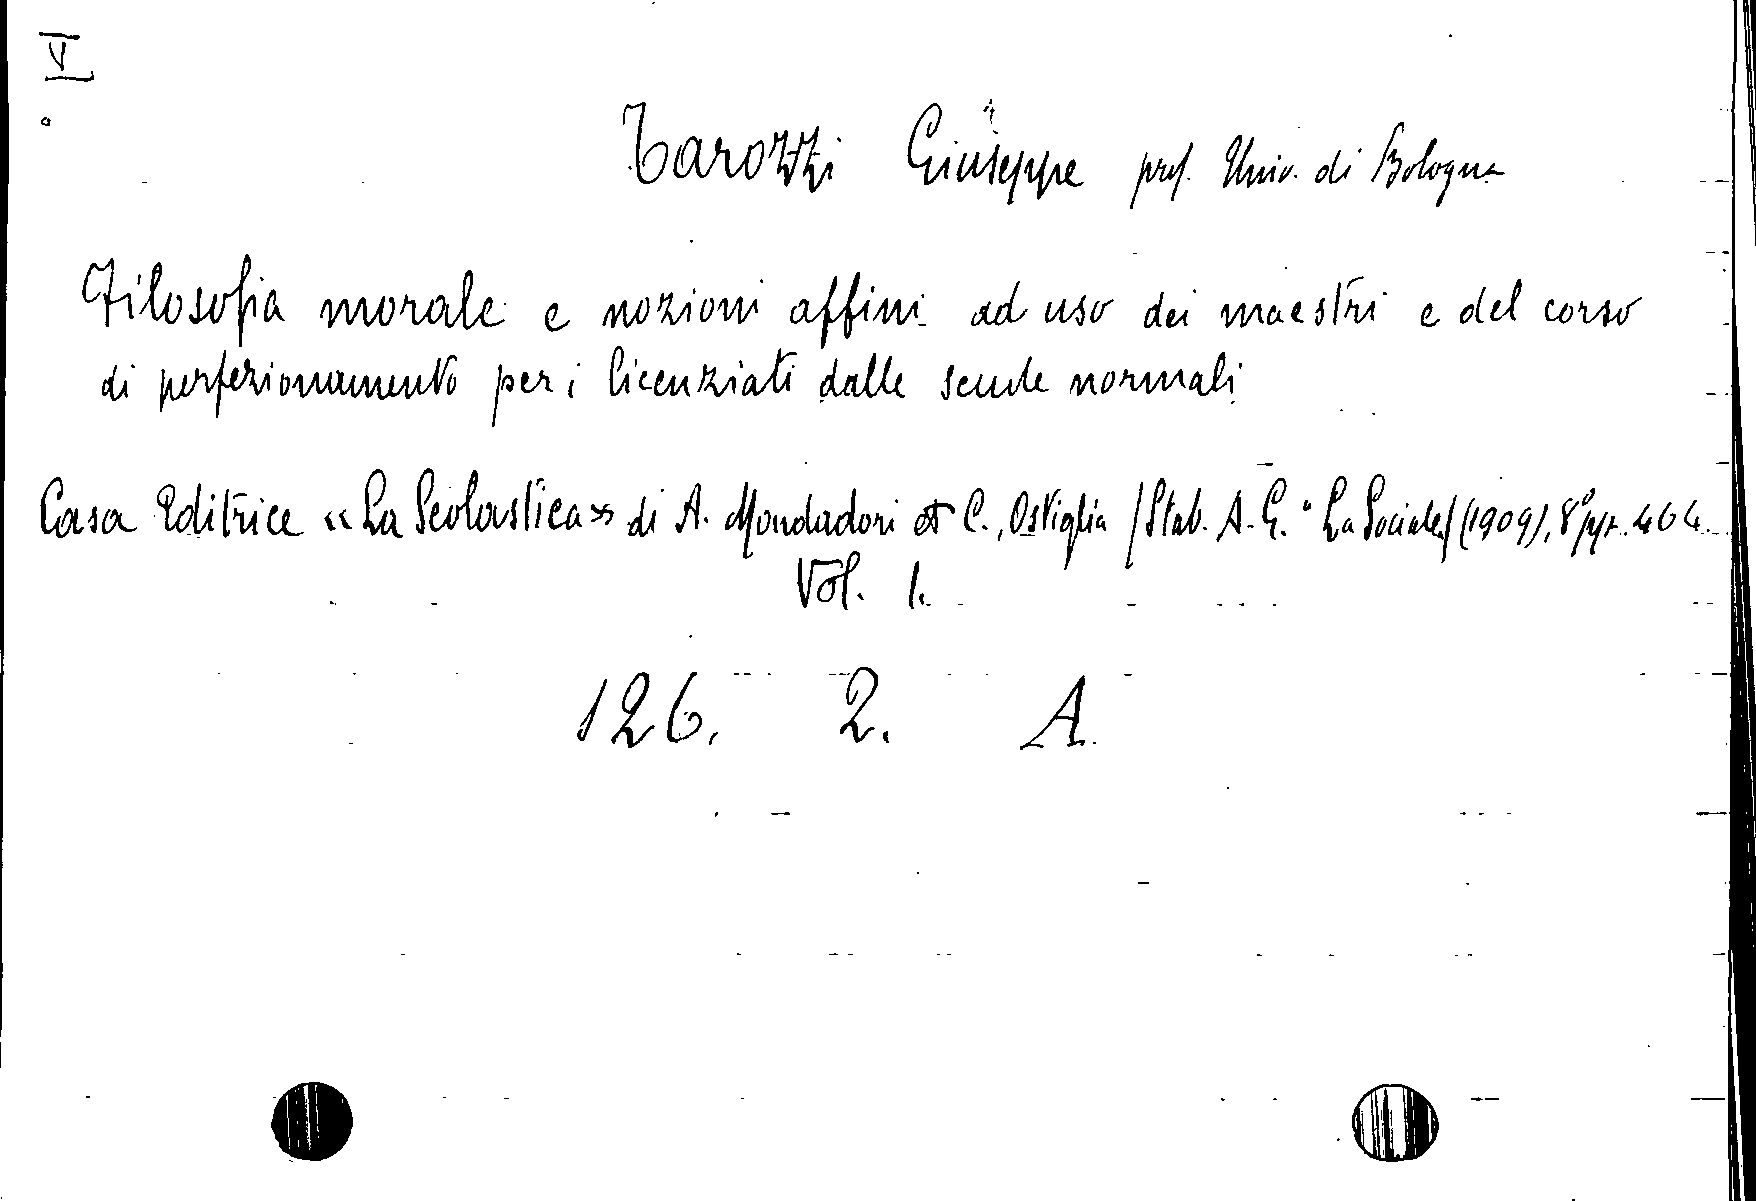 V
Tarozzi Giuseppe prof. Univ. di Bologna
Filosofia morale e nozioni affini ad uso dei maestri e del corso
di perfezionamento per i licenziati dalle scuole normali
Casa Editrice «La Scolastica» di A. Mondadori et C., Ostiglia (Stab. A. G. "La Sociale) (1909), 8° pp. 464.
Vol. 1.
126. 2. A.